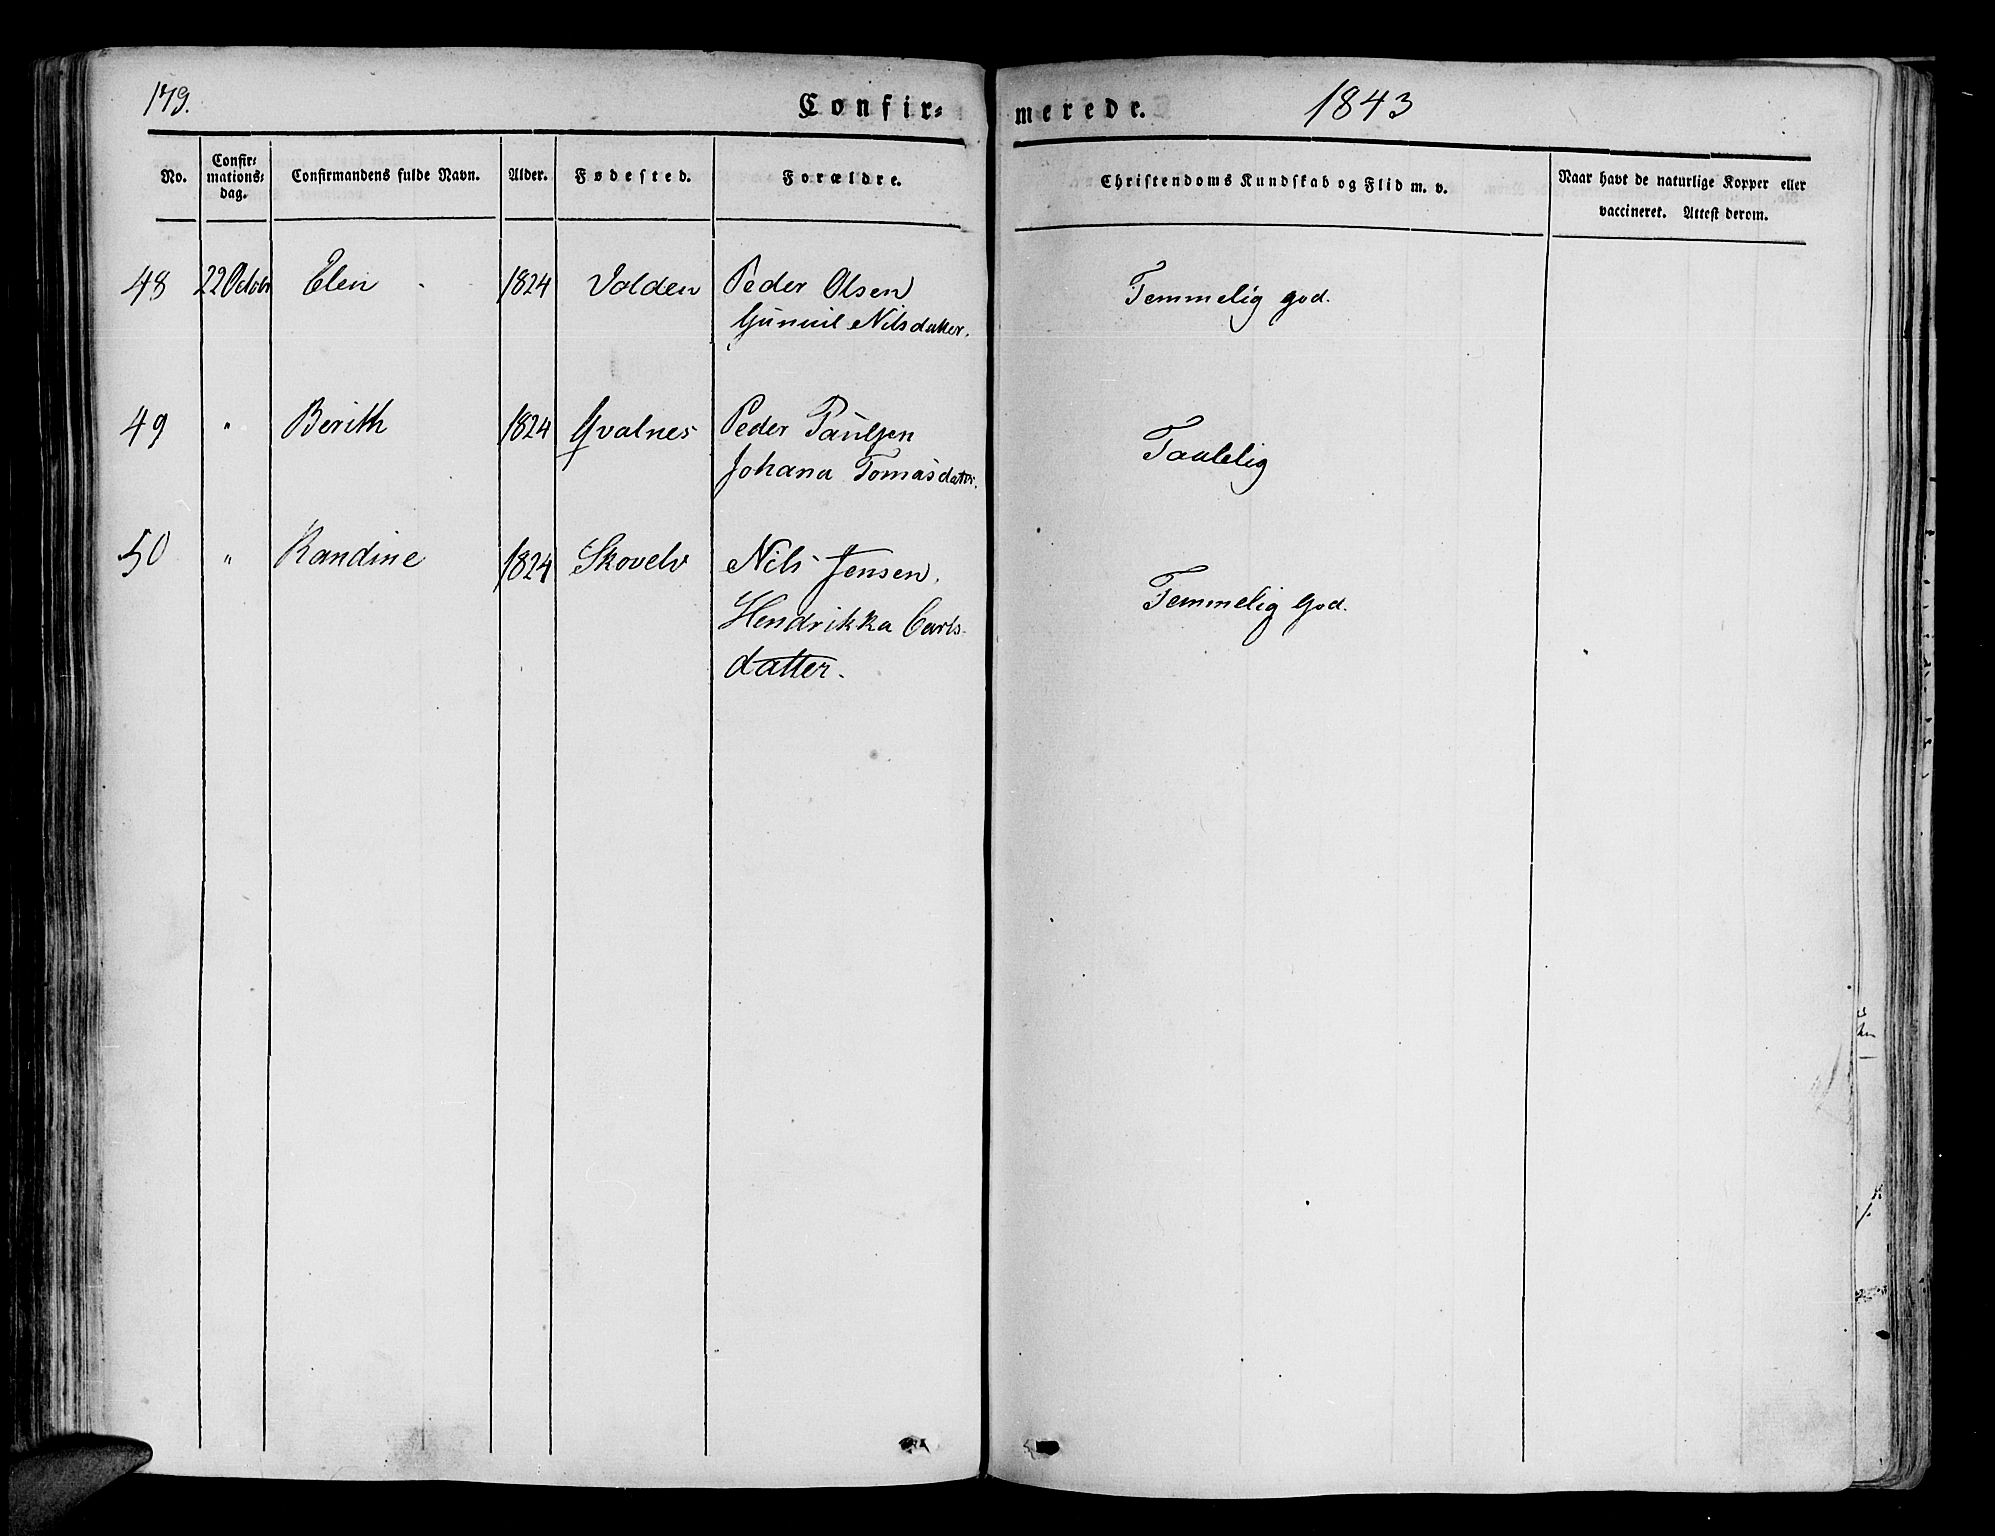 179.
Confir=
merede.
1843
No.
Confir=
mations=
dag.
Confirmandens fulde Navn.
Alder.
Fødested.
Forældre.
Christendoms Kundskab og Flid m. v.
Naar havt de naturlige Kopper eller
vaccineret. Attest derom.
48 22 Octobr Elen 1824 Volden Peder Olsen Temmelig god.
Nilsdatter.
49 " Berith 1824 Qvalnes Peder Paulsen Taalelig
Johana Tomasdatr.
50 " Randine 1824 Skovelv Nils Jensen. Temmelig God.
Hendrikka Carls-
datter.